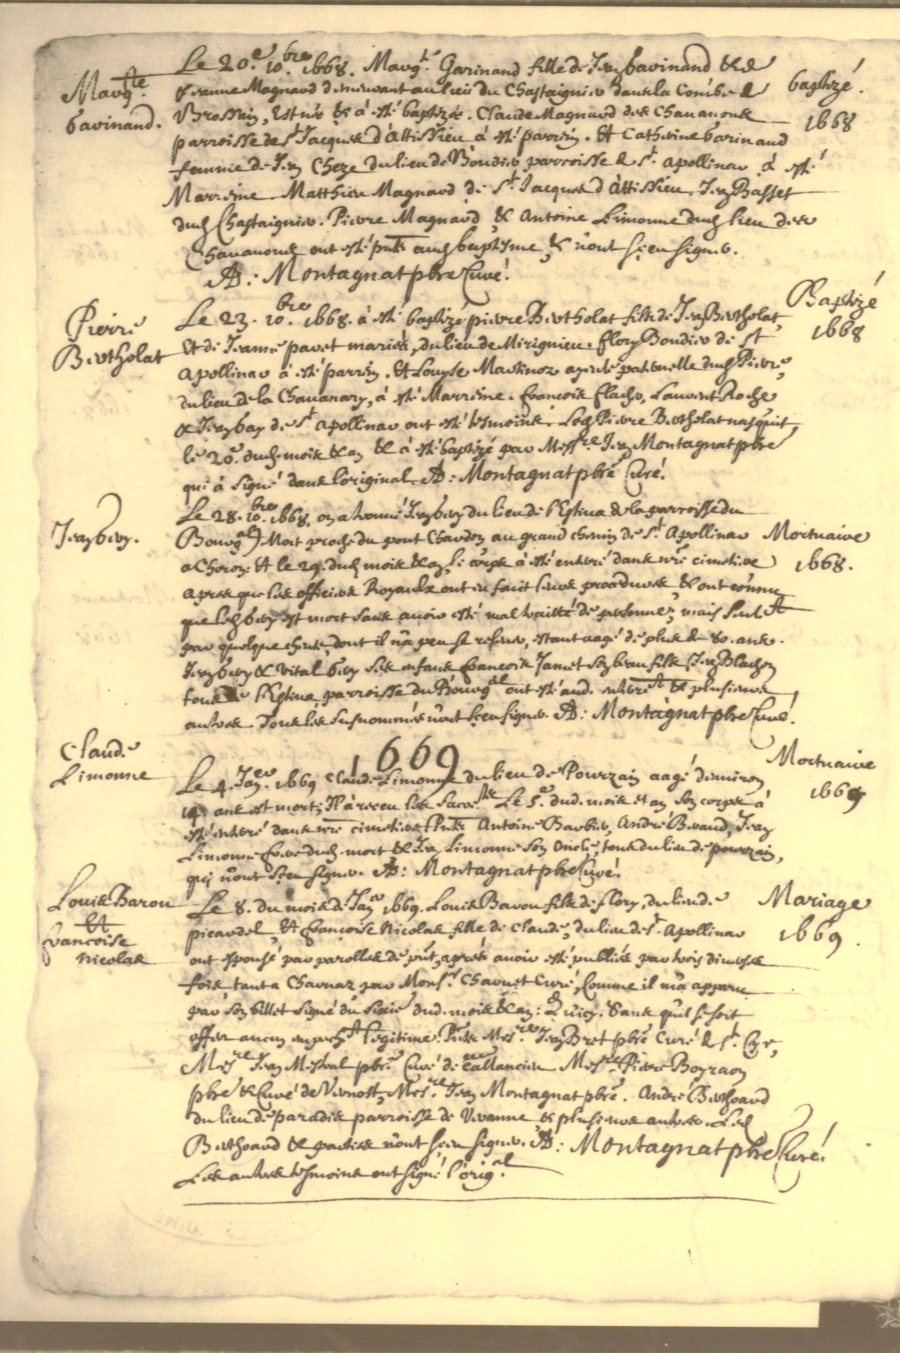 Marg.te
Garinand.
Le 20.e 10.bre 1668. Marg.t Garinand fille de Jean Garinand & de
Jeanne Magnard demeurant au lieu du Chastaignier dans la Combe de
Brossin, est née & à esté baptizée. Claude Magnard des Chananouse
parroisse de S.t Jacques d'Attissieu à esté parrin. Et Catherine Garinand
femme de Jean Cheze du lieu de Boudier parroisse de S.t Apollinar à esté
Marreine. Matthieu Magnard de S.t Jacques d'Attissieu, Jean Basset
dud. Chastaignier. Pierre Magnard, & Antoine Limonne dud. lieu des
Chananouse ont esté pnts aud. baptesme, & n'ont sceu signer.
AB: Montagnat pbre Curé.
baptizé.
1668
Pierre
Bertholat
Le 23. 10.bre 1668. à esté baptizé pierre Bertholat fils de Jean Bertholat,
Et de Jeanne pavet mariés, du lieu de Mirignieu. flory Boudier de St
Apollinar à esté parrin. Et Louyse Martinoz ayeule paternelle dud. Pierre,
du lieu de la Chavanary, à esté Marreine. françois flacho, Laurent Roche
& Jean bay de S.t Apollinar ont esté tesmoins. Led. Pierre Bertholat nasquit
le 20.e dud. mois & an & à esté baptizé par Mess.re Jean Montagnat pbre
qui à signé dans l'original. AB: Montagnat pbre Curé.
Baptizé
1668
Jean bery.
Le 28. 10.bre 1668. on a trouvé Jean bery du lieu de l'Estina de la parroisse du
Bourg.al Mort proche du pont Chardon au grand chemin de S.t Apollinar
a Choron. Et le 29. dud. mois & an, le corps à esté enterré dans nre cimetiere
apres que les officiers Royaulx ont eu faict leurs procedures, & ont connu
que led. bery est mort sans avoir esté mal traitté de personne, mais seul.t
par quelque cheute, dont il n'a peu se relever, estant aagé de plus de 80. ans.
Jean bery & Vital bery ses enfans, francois Jamet son beau fils, Jean Blachon
tous de l'Estina, parroisse du Bourg.al ont esté aud. enterr.t & plusieurs
autres. Tous les susnommés n'ont sceu signer. AB: Montagnat pbre Curé.
Mortuaire
1668.
1669
Claude
Limonne
Le 4. Jan.er 1669 Claude Limonne du lieu de Pourzain aagé d'environ
14 ans est mort; Il à receu les Sacre.ts Le 5.e dud. mois et an son corps à
esté enterré dans nre cimetiere. Pnts Antoine Barbier, André Beraud, Jean
Limonne frere dud. mort & Jean Limonne son oncle, tous du lieu de pourzain,
qui n'ont sceu signer. AB: Montagnat pbre Curé.
Mortuaire
1669
Louis Baron
Et
françoise
Nicolas
Le 8. du mois de Jan.er 1669. Louis Baron fils de flory, du lieu de
picardel, Et françoise Nicolas fille de Claude, du lieu de S.t Apollinar
ont espousé par parolles de pnt, aprés avoir esté publiés par trois diverses
fois tant a Charnas par Mons.r Charvet Curé, Comme il m'a apparu
par son billet signé du sixie.e dud. mois & an; & d'icy. Sans qu'il se soit
offer aucun empesch.t legitime. Pnts Mes.re Jean Bret pbre Curé de S.t Cyr,
Mes.re Jean Mestral pbre Curé de Tallancieu Mes.re Pierre Boyraon
pbre & Curé de Vernosc, Mes.re Jean Montagnat pbre. André Berthoard
du lieu de paradis parroisse de Vivanne & plusieurs autres. Led.
Berthoard & parties n'ont sceu signer. AB: Montagnat pbre Curé.
Les autres tesmoins ont signé l'orig.al
Mariage
1669.